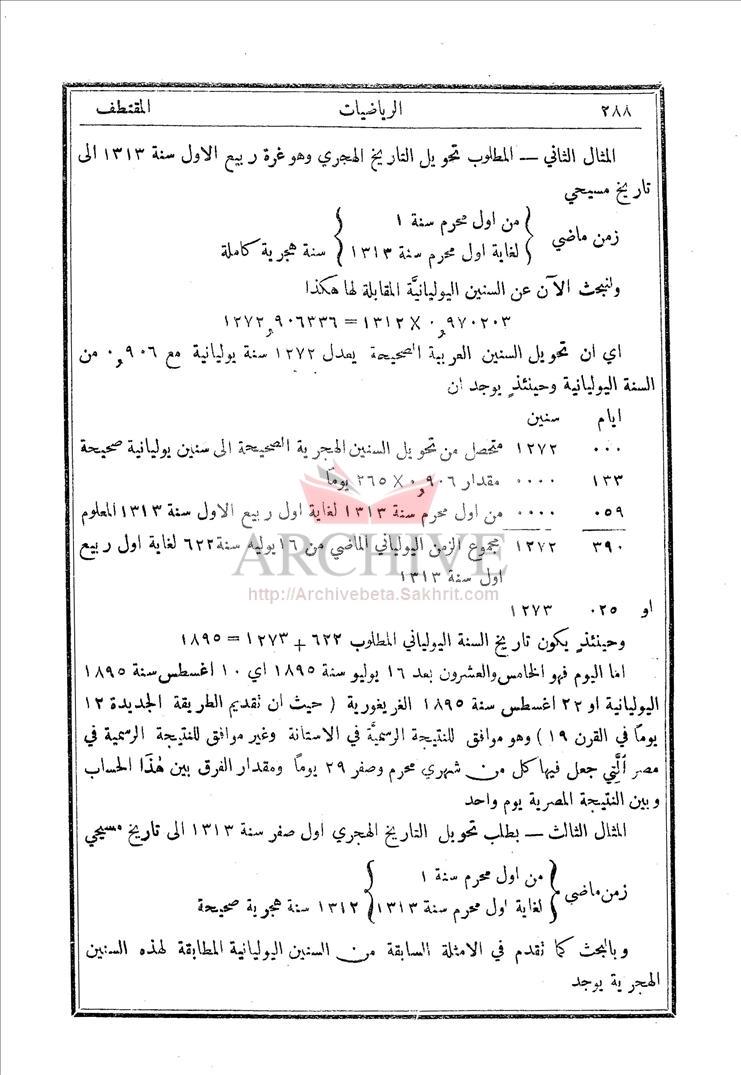 ٢٨٨ الرياضيات المقتطف
المثال الثاني — المطلوب تحويل التاريخ الهجري وهو غرة ربيع الاول سنة ١٣١٣ الى
تاريخ مسيحي
زمن ماضي { من اول محرم سنة ١
لغاية اول محرم سنة ١٣١٣ } سنة هجرية كاملة
ولنبحث الآن عن السنين اليوليانيَّة المقابلة لها هكذا
٠,٩٧٠٢٠٣ × ١٣١٢ = ١٢٧٢,٩٠٦٣٣٦
اي ان تحويل السنين العربية الصحيحة يعدل ١٢٧٢ سنة يوليانية مع ٠,٩٠٦ من
السنة اليوليانية وحينئذٍ يوجد ان
ايام سنين
٠٠٠ ١٢٧٢ متحصل من تحويل السنين الهجرية الصحيحة الى سنين يوليانية صحيحة
١٣٣ ٠٠٠٠ مقدار ٠,٩٠٦ × ٢٦٥ يوماً
٠٥٩ ٠٠٠٠ من اول محرم سنة ١٣١٣ لغاية اول ربيع الاول سنة ١٣١٣ المعلوم
٣٩٠ ١٢٧٢ مجموع الزمن اليولياني الماضي من ١٦ يوليه سنة ٦٢٢ لغاية اول ربيع
اول سنة ١٣١٣
او ٠٢٥ ١٢٧٣
وحينئذٍ يكون تاريخ السنة اليولياني المطلوب ٦٢٢ + ١٢٧٣ = ١٨٩٥
اما اليوم فهو الخامس والعشرون بعد ١٦ يوليو سنة ١٨٩٥ اي ١٠ اغسطس سنة ١٨٩٥
اليوليانية او ٢٢ اغسطس سنة ١٨٩٥ الغريغورية ( حيث ان تقديم الطريقة الجديدة ١٢
يوماً في القرن ١٩ ) وهو موافق للنتيجة الرسميَّة في الاستانة وغير موافق للنتيجة الرسمية في
مصر الَّتي جعل فيها كل من شهري محرم وصفر ٢٩ يوماً ومقدار الفرق بين هٰذا الحساب
وبين النتيجة المصرية يوم واحد
المثال الثالث — يطلب تحويل التاريخ الهجري اول صفر سنة ١٣١٣ الى تاريخ مسيحي
زمن ماضي { من اول محرم سنة ١
لغاية اول محرم سنة ١٣١٣ } ١٣١٢ سنة هجرية صحيحة
وبالبحث كما تقدم في الامثلة السابقة من السنين اليوليانية المطابقة لهذه السنين
الهجرية يوجد
ARCHIVE
http://Archivebeta.Sakhrit.com